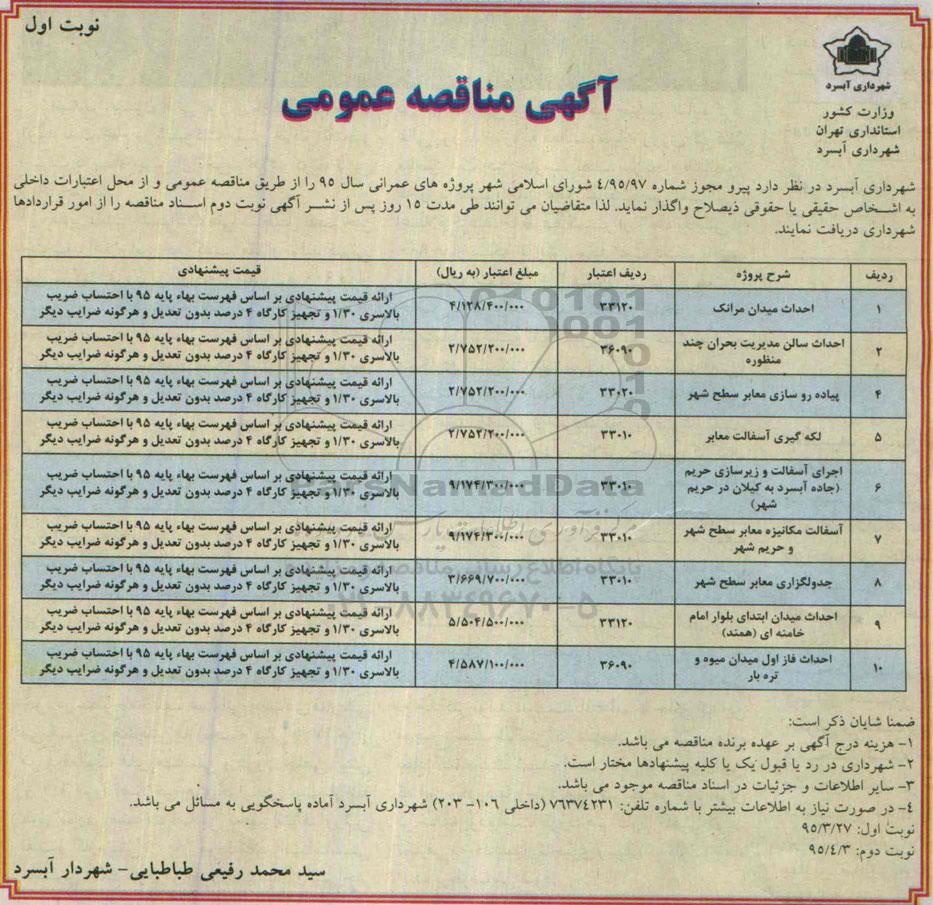 نوبت اول
شهرداری آبسرد
وزارت کشور
استانداری تهران
شهرداری آبسرد
آگهی مناقصه عمومی
شهرداری آبسرد در نظر دارد پیرو مجوز شماره ۴/۹۵/۹۷ شورای اسلامی شهر پروژه های عمرانی سال ۹۵ را از طریق مناقصه عمومی و از محل اعتبارات داخلی
به اشخاص حقیقی یا حقوقی ذیصلاح واگذار نماید. لذا متقاضیان می توانند طی مدت ۱۵ روز پس از نشر آگهی نوبت دوم اسناد مناقصه را از امور قراردادها
شهرداری دریافت نمایند.
ردیف شرح پروژه ردیف اعتبار مبلغ اعتبار (به ریال) قیمت پیشنهادی
۱ احداث میدان مرانک ۳۳۱۲۰ ۴/۱۲۸/۴۰۰/۰۰۰ ارائه قیمت پیشنهادی بر اساس فهرست بهاء پایه ۹۵ با احتساب ضریب
بالاسری ۱/۳۰ و تجهیز کارگاه ۴ درصد بدون تعدیل و هرگونه ضرایب دیگر
۲ احداث سالن مدیریت بحران چند
منظوره ۳۶۰۹۰ ۲/۷۵۲/۲۰۰/۰۰۰ ارائه قیمت پیشنهادی بر اساس فهرست بهاء پایه ۹۵ با احتساب ضریب
بالاسری ۱/۳۰ و تجهیز کارگاه ۴ درصد بدون تعدیل و هرگونه ضرایب دیگر
۴ پیاده رو سازی معابر سطح شهر ۳۳۰۲۰ ۲/۷۵۲/۲۰۰/۰۰۰ ارائه قیمت پیشنهادی بر اساس فهرست بهاء پایه ۹۵ با احتساب ضریب
بالاسری ۱/۳۰ و تجهیز کارگاه ۴ درصد بدون تعدیل و هرگونه ضرایب دیگر
۵ لکه گیری آسفالت معابر ۳۳۰۱۰ ۲/۷۵۲/۲۰۰/۰۰۰ ارائه قیمت پیشنهادی بر اساس فهرست بهاء پایه ۹۵ با احتساب ضریب
بالاسری ۱/۳۰ و تجهیز کارگاه ۴ درصد بدون تعدیل و هرگونه ضرایب دیگر
۶ اجرای آسفالت و زیرسازی حریم
(جاده آبسرد به کیلان در حریم
شهر) ۳۳۰۱۰ ۹/۱۷۴/۳۰۰/۰۰۰ ارائه قیمت پیشنهادی بر اساس فهرست بهاء پایه ۹۵ با احتساب ضریب
بالاسری ۱/۳۰ و تجهیز کارگاه ۴ درصد بدون تعدیل و هرگونه ضرایب دیگر
۷ آسفالت مکانیزه معابر سطح شهر
و حریم شهر ۳۳۰۱۰ ۹/۱۷۴/۳۰۰/۰۰۰ ارائه قیمت پیشنهادی بر اساس فهرست بهاء پایه ۹۵ با احتساب ضریب
بالاسری ۱/۳۰ و تجهیز کارگاه ۴ درصد بدون تعدیل و هرگونه ضرایب دیگر
۸ جدولگزاری معابر سطح شهر ۳۳۰۱۰ ۳/۶۶۹/۷۰۰/۰۰۰ ارائه قیمت پیشنهادی بر اساس فهرست بهاء پایه ۹۵ با احتساب ضریب
بالاسری ۱/۳۰ و تجهیز کارگاه ۴ درصد بدون تعدیل و هرگونه ضرایب دیگر
۹ احداث میدان ابتدای بلوار امام
خامنه ای (همند) ۳۳۱۲۰ ۵/۵۰۴/۵۰۰/۰۰۰ ارائه قیمت پیشنهادی بر اساس فهرست بهاء پایه ۹۵ با احتساب ضریب
بالاسری ۱/۳۰ و تجهیز کارگاه ۴ درصد بدون تعدیل و هرگونه ضرایب دیگر
۱۰ احداث فاز اول میدان میوه و
تره بار ۳۶۰۹۰ ۴/۵۸۷/۱۰۰/۰۰۰ ارائه قیمت پیشنهادی بر اساس فهرست بهاء پایه ۹۵ با احتساب ضریب
بالاسری ۱/۳۰ و تجهیز کارگاه ۴ درصد بدون تعدیل و هرگونه ضرایب دیگر
NamadData
پایگاه اطلاع رسانی مناقصه
۸۸۳۴۹۶۷۰-۵
ضمنا شایان ذکر است:
۱- هزینه درج آگهی بر عهده برنده مناقصه می باشد.
۲- شهرداری در رد یا قبول یک یا کلیه پیشنهادها مختار است.
۳- سایر اطلاعات و جزئیات در اسناد مناقصه موجود می باشد.
۴- در صورت نیاز به اطلاعات بیشتر با شماره تلفن: ۷۶۳۷۴۲۳۱ (داخلی ۱۰۶- ۲۰۳) شهرداری آبسرد آماده پاسخگویی به مسائل می باشد.
نوبت اول: ۹۵/۳/۲۷
نوبت دوم: ۹۵/۴/۳
سید محمد رفیعی طباطبایی- شهردار آبسرد